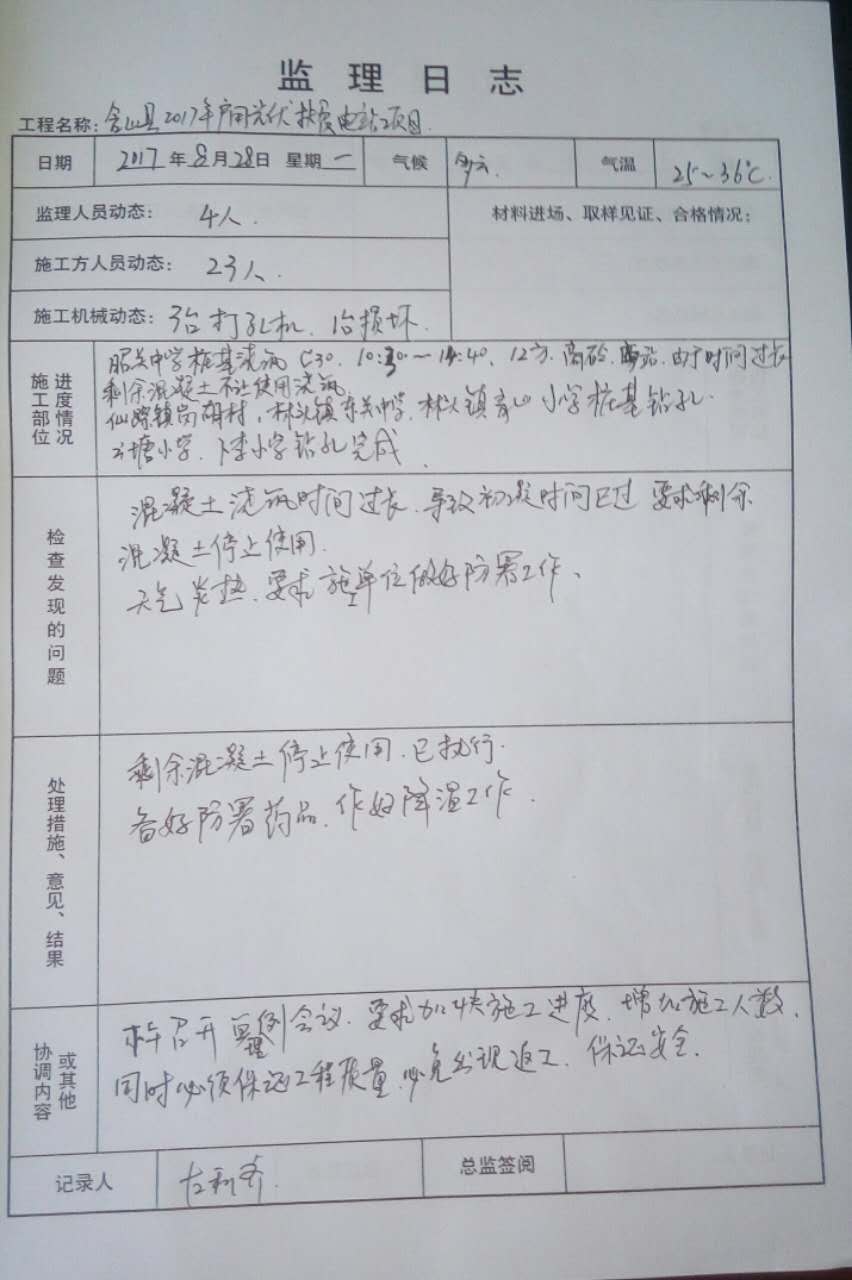 监理日志
工程名称: 含山县2017年户用光伏扶贫电站项目
日期 2017年8月28日 星期一 气候 多云 气温 25~36℃.
监理人员动态: 4人. 材料进场、取样见证、合格情况:
施工方人员动态: 23人.
施工机械动态: 3台打孔机、1台损坏.
施工部位进度情况
昭关中学桩基浇筑 C30. 10:30~14:40、12方. 商砼. 由于时间过长
剩余混凝土不让使用浇筑.
仙踪镇岗胡村, 林头镇东关中学. 林头镇青山小学桩基钻孔.
塘小学. 卞李小学钻孔完成.
检查发现的问题
混凝土浇筑时间过长. 导致初凝时间已过 要求剩余
混凝土停止使用.
天气炎热. 要求施工单位做好防署工作、
处理措施、意见、结果
剩余混凝土停止使用. 已执行.
备好防署药品. 作好降温工作.
协调内容或其他
召开监理例会议. 要求加快施工进度. 增加施工人数.
同时必须保证工程质量. 必免出现返工. 保证安全.
记录人 左利齐. 总监签阅